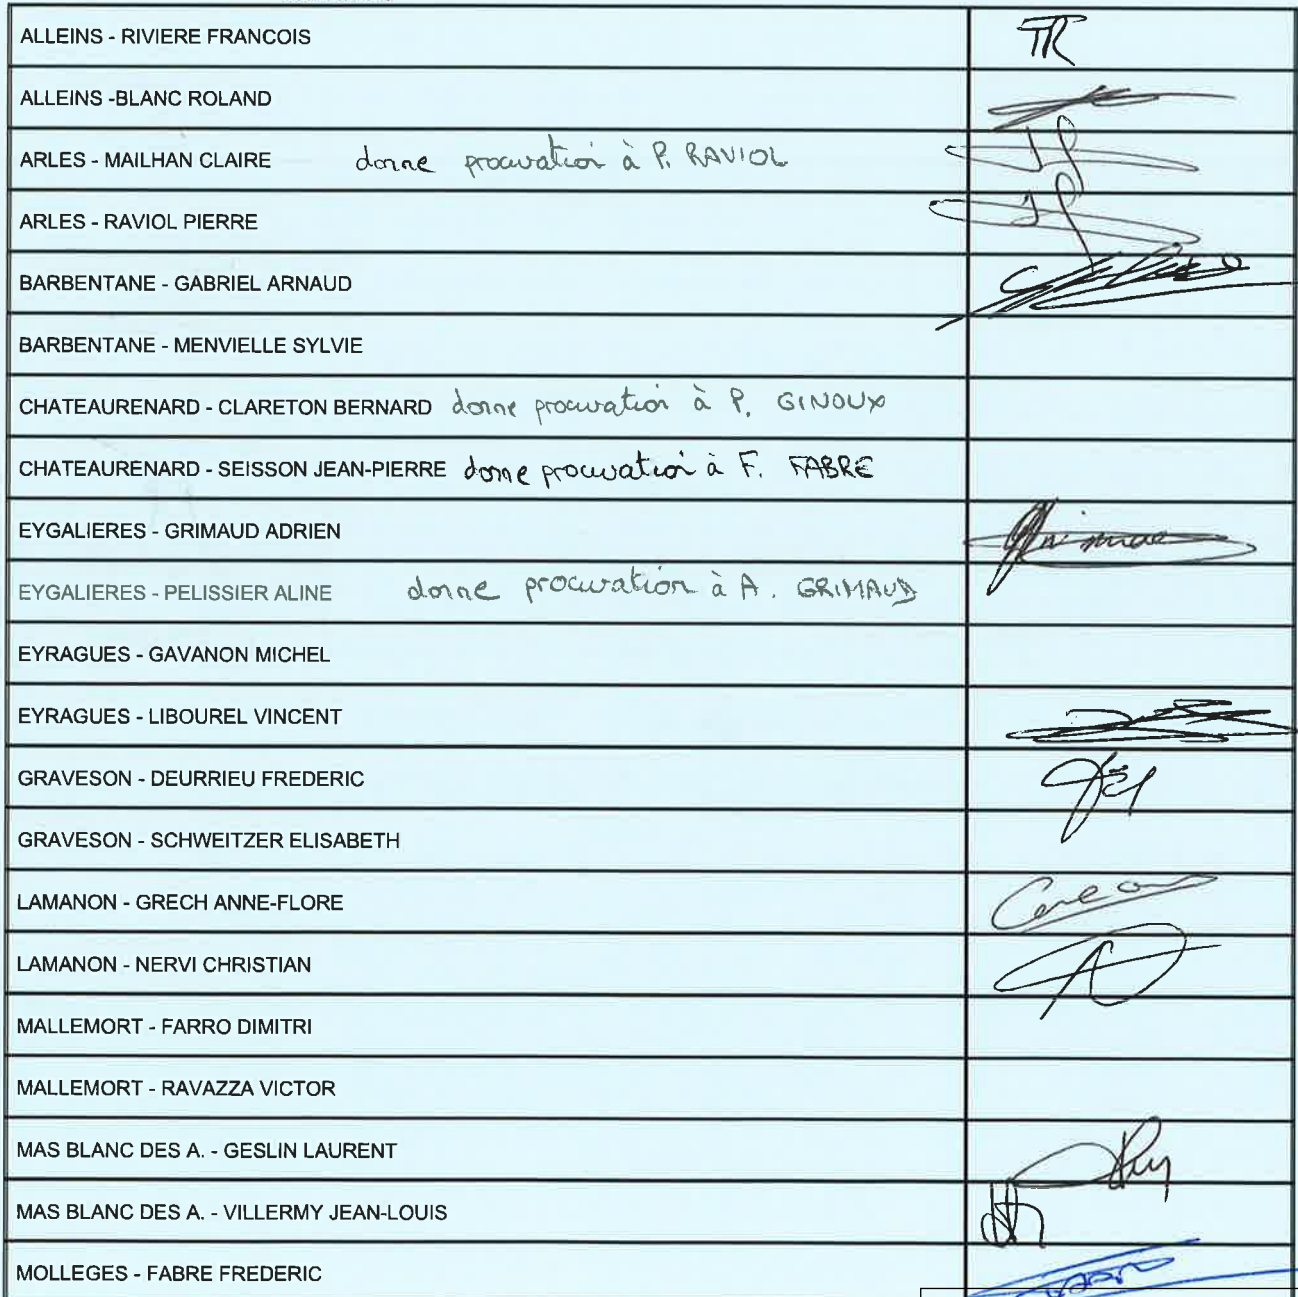 ALLEINS - RIVIERE FRANCOIS
ALLEINS -BLANC ROLAND
ARLES - MAILHAN CLAIRE donne procuration à P. RAVIOL
ARLES - RAVIOL PIERRE
BARBENTANE - GABRIEL ARNAUD
BARBENTANE - MENVIELLE SYLVIE
CHATEAURENARD - CLARETON BERNARD donne procuration à P. GINOUX
CHATEAURENARD - SEISSON JEAN-PIERRE donne procuration à F. FABRE
EYGALIERES - GRIMAUD ADRIEN
EYGALIERES - PELISSIER ALINE donne procuration à A. GRIMAUD
EYRAGUES - GAVANON MICHEL
EYRAGUES - LIBOUREL VINCENT
GRAVESON - DEURRIEU FREDERIC
GRAVESON - SCHWEITZER ELISABETH
LAMANON - GRECH ANNE-FLORE
LAMANON - NERVI CHRISTIAN
MALLEMORT - FARRO DIMITRI
MALLEMORT - RAVAZZA VICTOR
MAS BLANC DES A. - GESLIN LAURENT
MAS BLANC DES A. - VILLERMY JEAN-LOUIS
MOLLEGES - FABRE FREDERIC